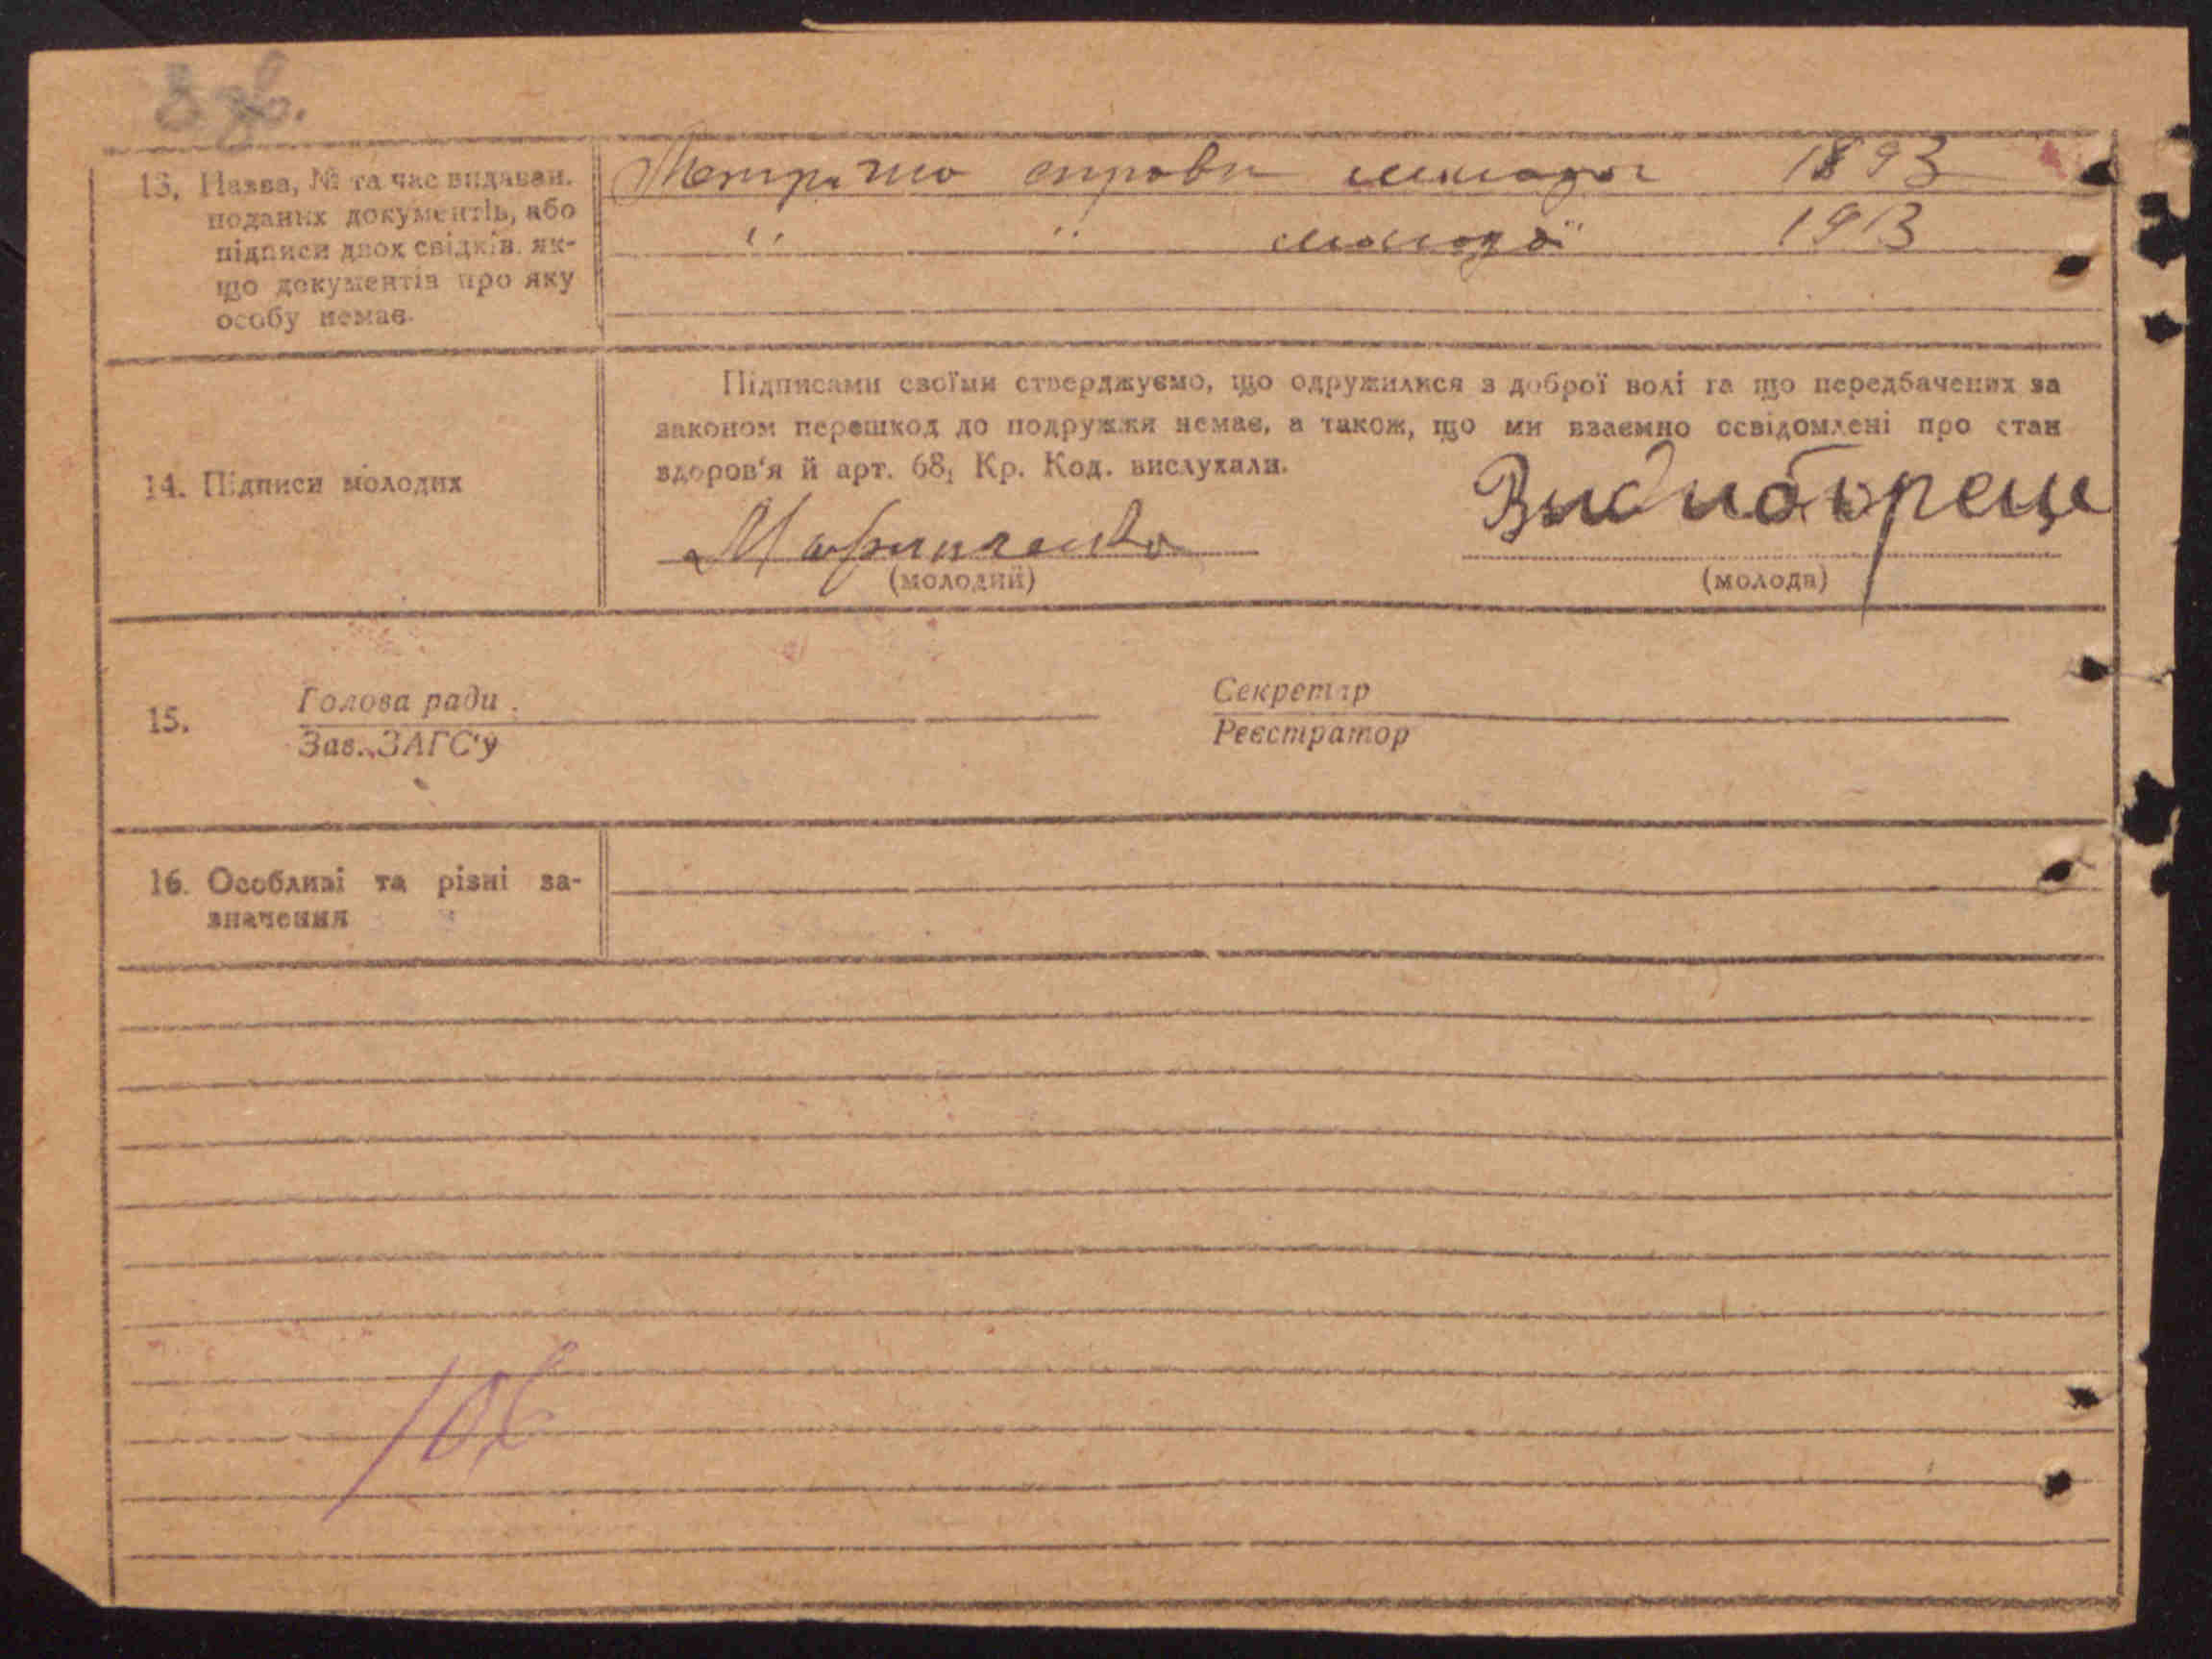 8 зв.
13. Назва, № та час видаван.
поданих документів, або
підписи двох свідків, як-
що документів про яку
особу немає.
справи 1893
" " молодої 1913
14. Підписи молодих
Підписами своїми стверджуємо, що одружилися з доброї волі та що передбачених за
законом перешкод до подружжя немає, а також, що ми взаємно освідомлені про стан
здоров'я й арт. 68, Кр. Код. вислухали.
(молодий)
(молода)
15.
Голова ради
Зав. ЗАГС'у
Секретар
Реєстратор
16. Особливі та різні за-
значення